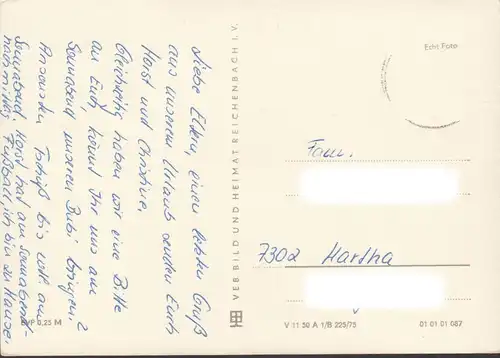 Liebe Eltern, einen letzten Gruß
aus unserem Urlaub senden Euch
Horst und Christine.
Gleichzeitig haben wir eine Bitte
an Euch, könnt Ihr uns am
Sonnabend unseren Bubi bringen?
Ansonsten Tschüß bis am
Sonnabend. Horst hat am Sonnabend-
nachmittag Fußball, ich bin zu Hause.
EVP 0,25 M
VEB BILD UND HEIMAT REICHENBACH I. V.
Echt Foto
Fam.
7302 Hartha
V 11 50 A 1/B 225/75 01 01 01 087